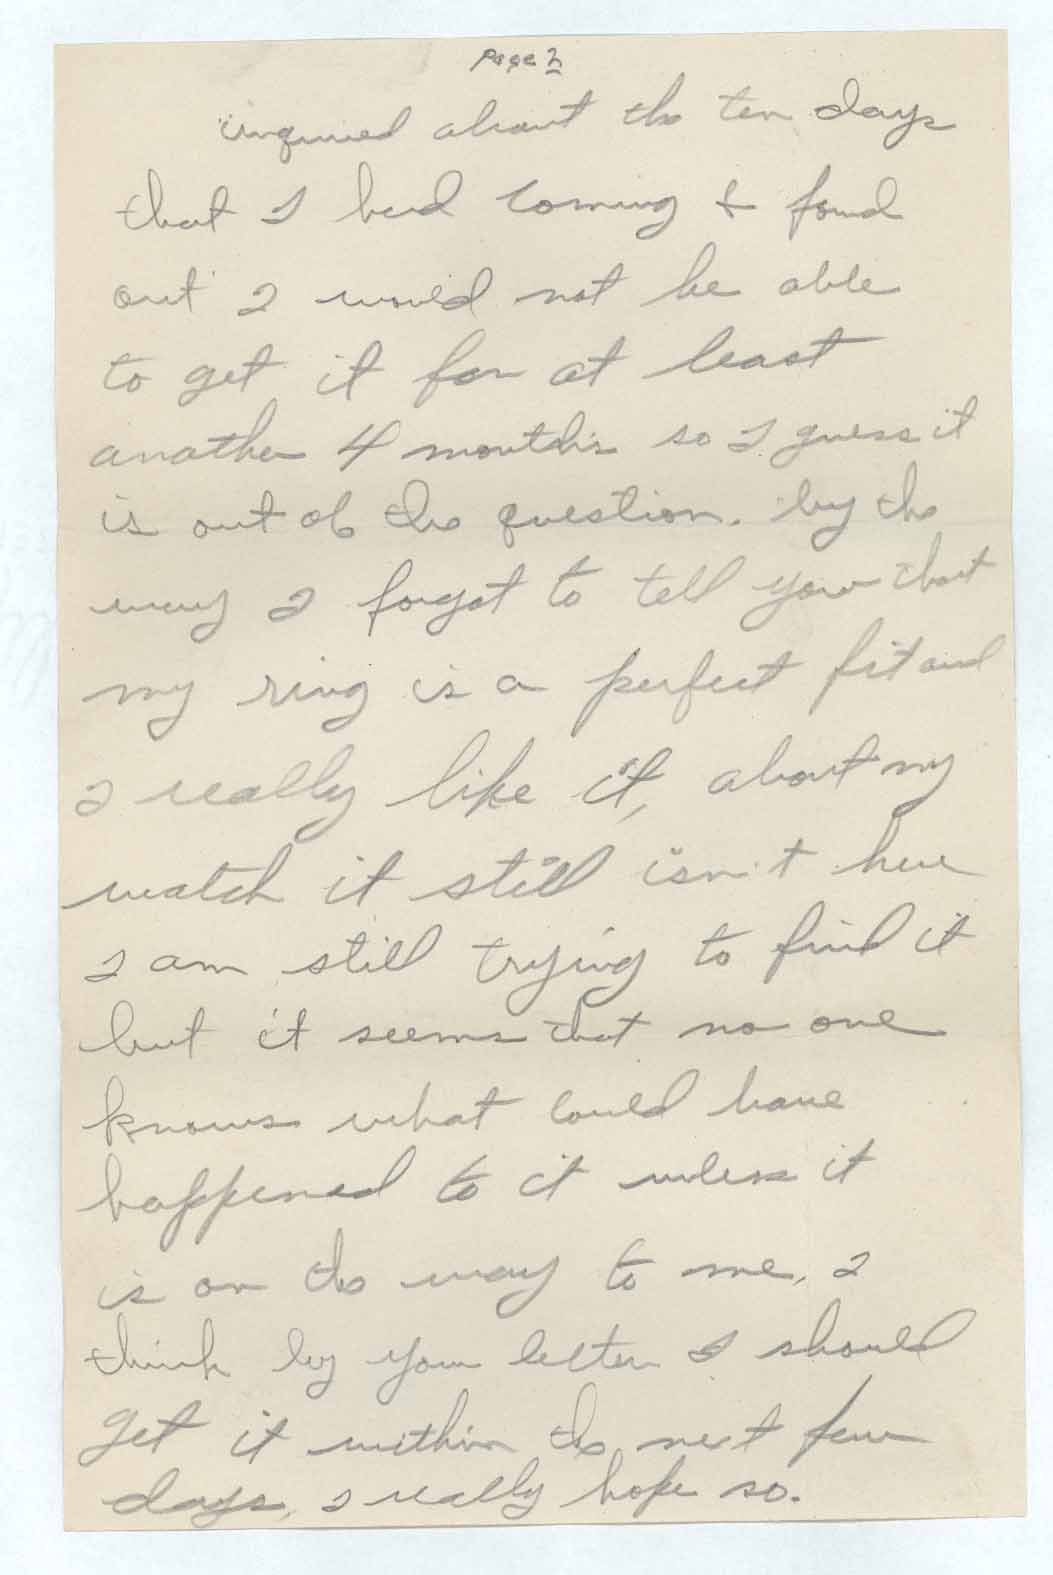 Page 2
inquired about the ten days
that I had coming & found
out I would not be able
to get it for at least
another 4 months so I guess it
is out of the question. by the
way I forgot to tell you that
my ring is a perfect fit and
I really like it, about my
watch it still isn't here
I am still trying to find it
but it seems that no one
knows what could have
happened to it unless it
is on the way to me, I
think by your letter I should
get it within the next few
days, I really hope so.